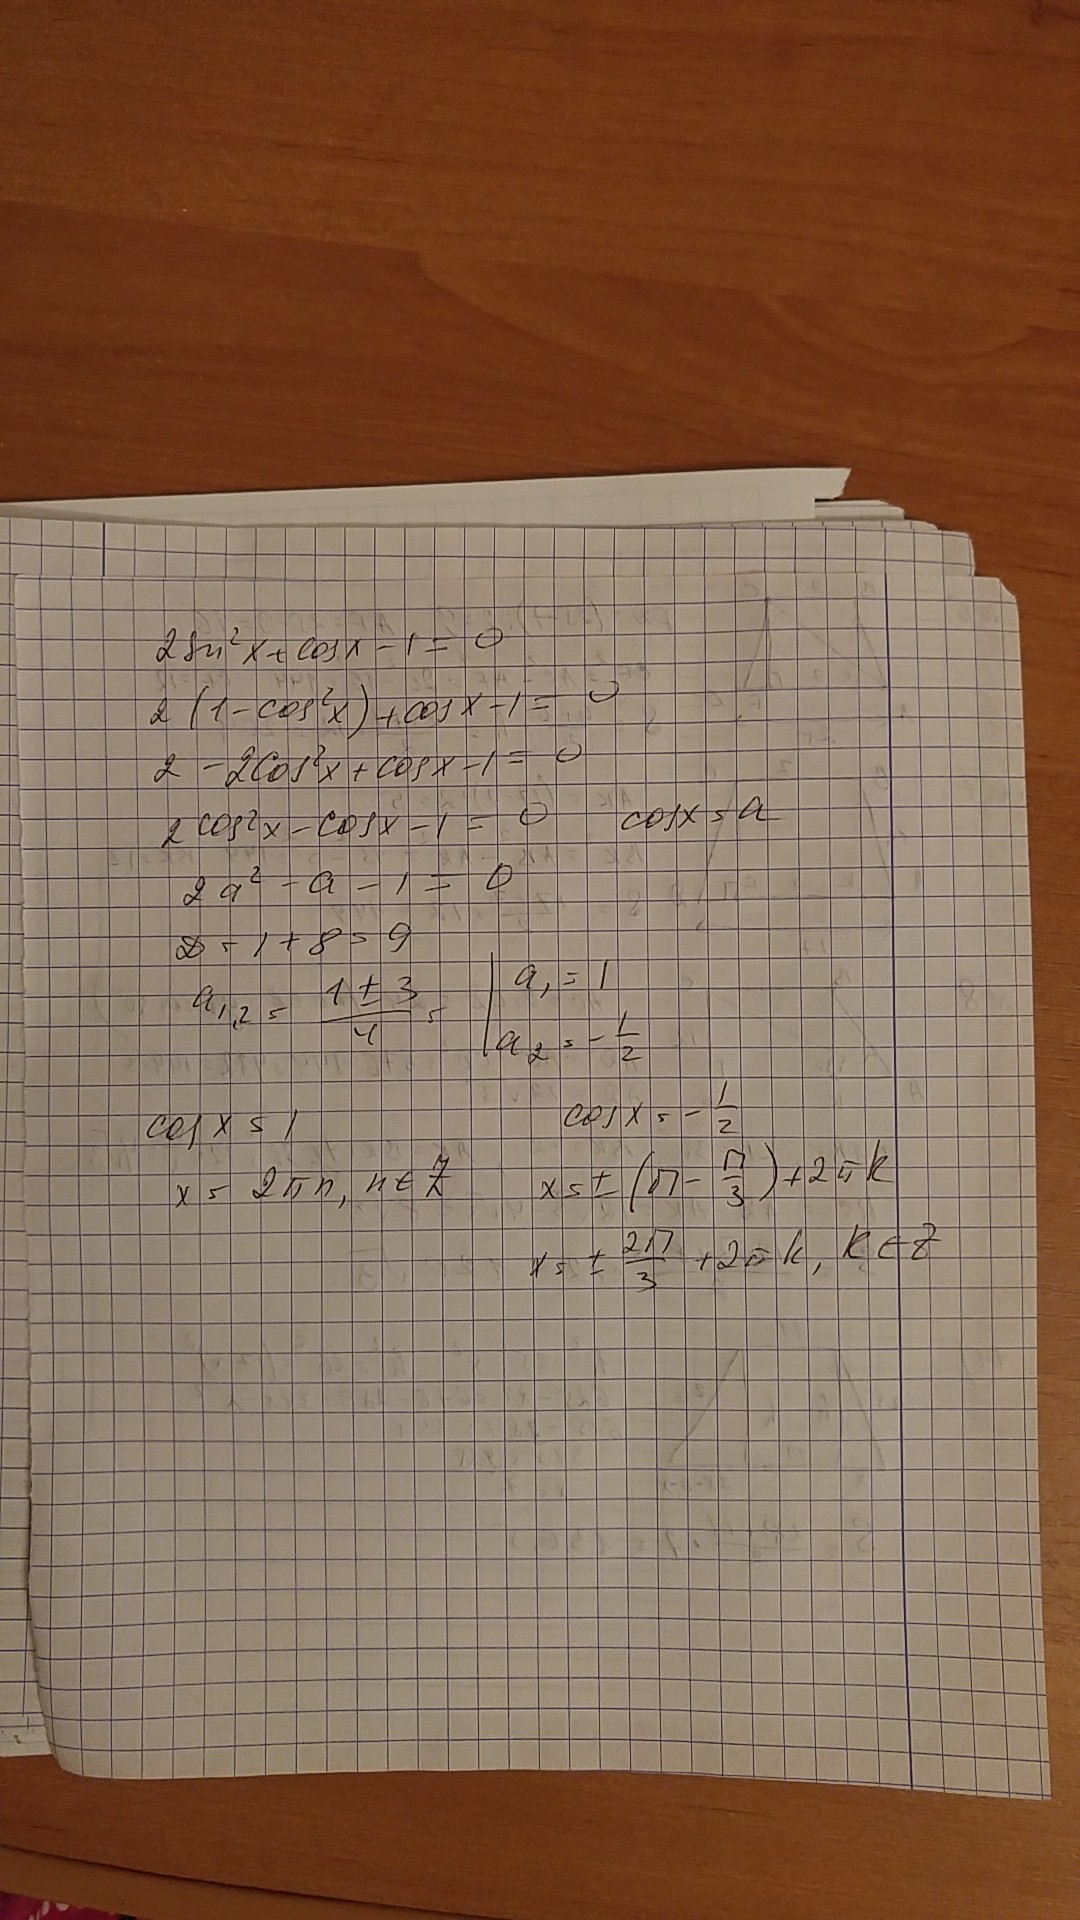 2sin²x + cosx - 1 = 0
2(1 - cos²x) + cosx - 1 = 0
2 - 2cos²x + cosx - 1 = 0
2cos²x - cosx - 1 = 0 cosx = a
2a² - a - 1 = 0
D = 1 + 8 = 9
a₁,₂ = (1 ± 3)/4 = | a₁ = 1
a₂ = -1/2
cosx = 1 cosx = -1/2
x = 2πn, n ∈ Z x = ±(π - π/3) + 2πk
x = ± 2π/3 + 2πk, k ∈ Z